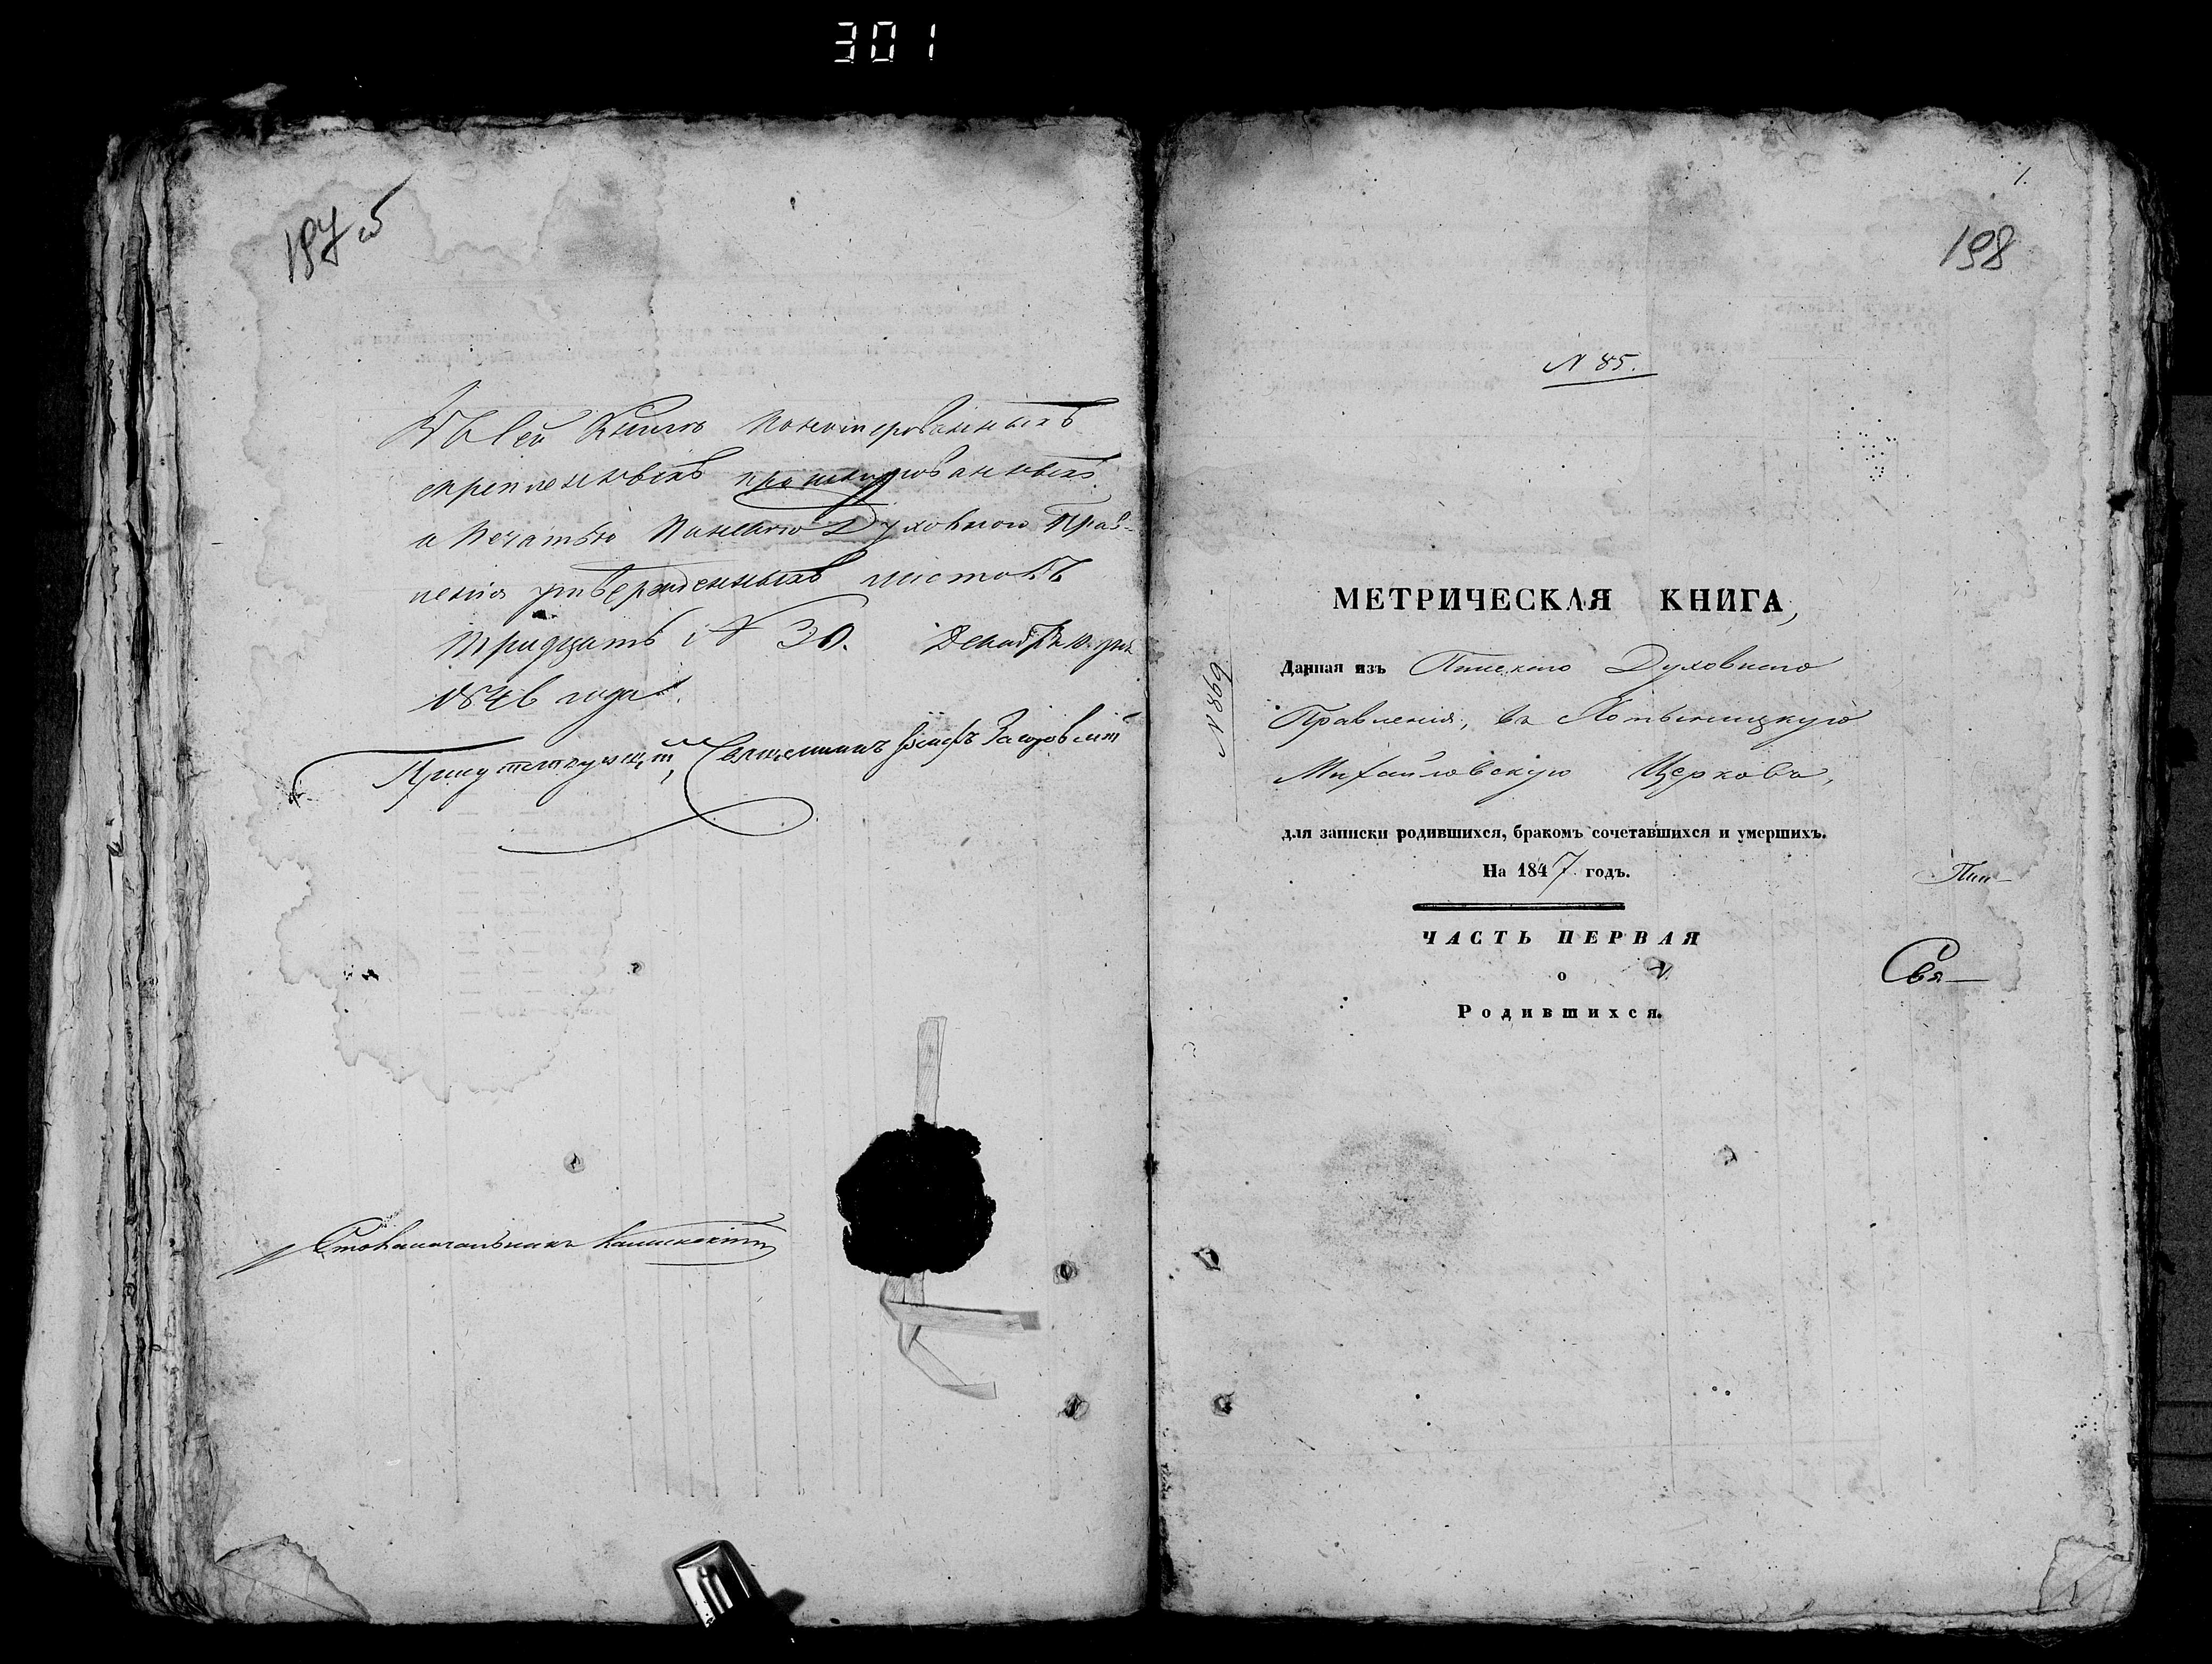 301
197 об
Въ сей Книге номерованныхъ
скрепленныхъ прошнурованныхъ
и Печатью Пинскаго Духовного Прав-
ления утвержденныхъ листовъ
тридцать № 30. Декабря дня
1846 года.
Присутствующий, Священникъ
Столоначальникъ
1.
198
N 85.
N 869
МЕТРИЧЕСКАЯ КНИГА,
Данная изъ Пинскаго Духовнаго
Правления, въ Хотыницкую
Михайловскую Церковь,
для записки родившихся, бракомъ сочетавшихся и умершихъ.
На 1847 годъ.
Пин-
ЧАСТЬ ПЕРВАЯ
о
Свя-
Родившихся.